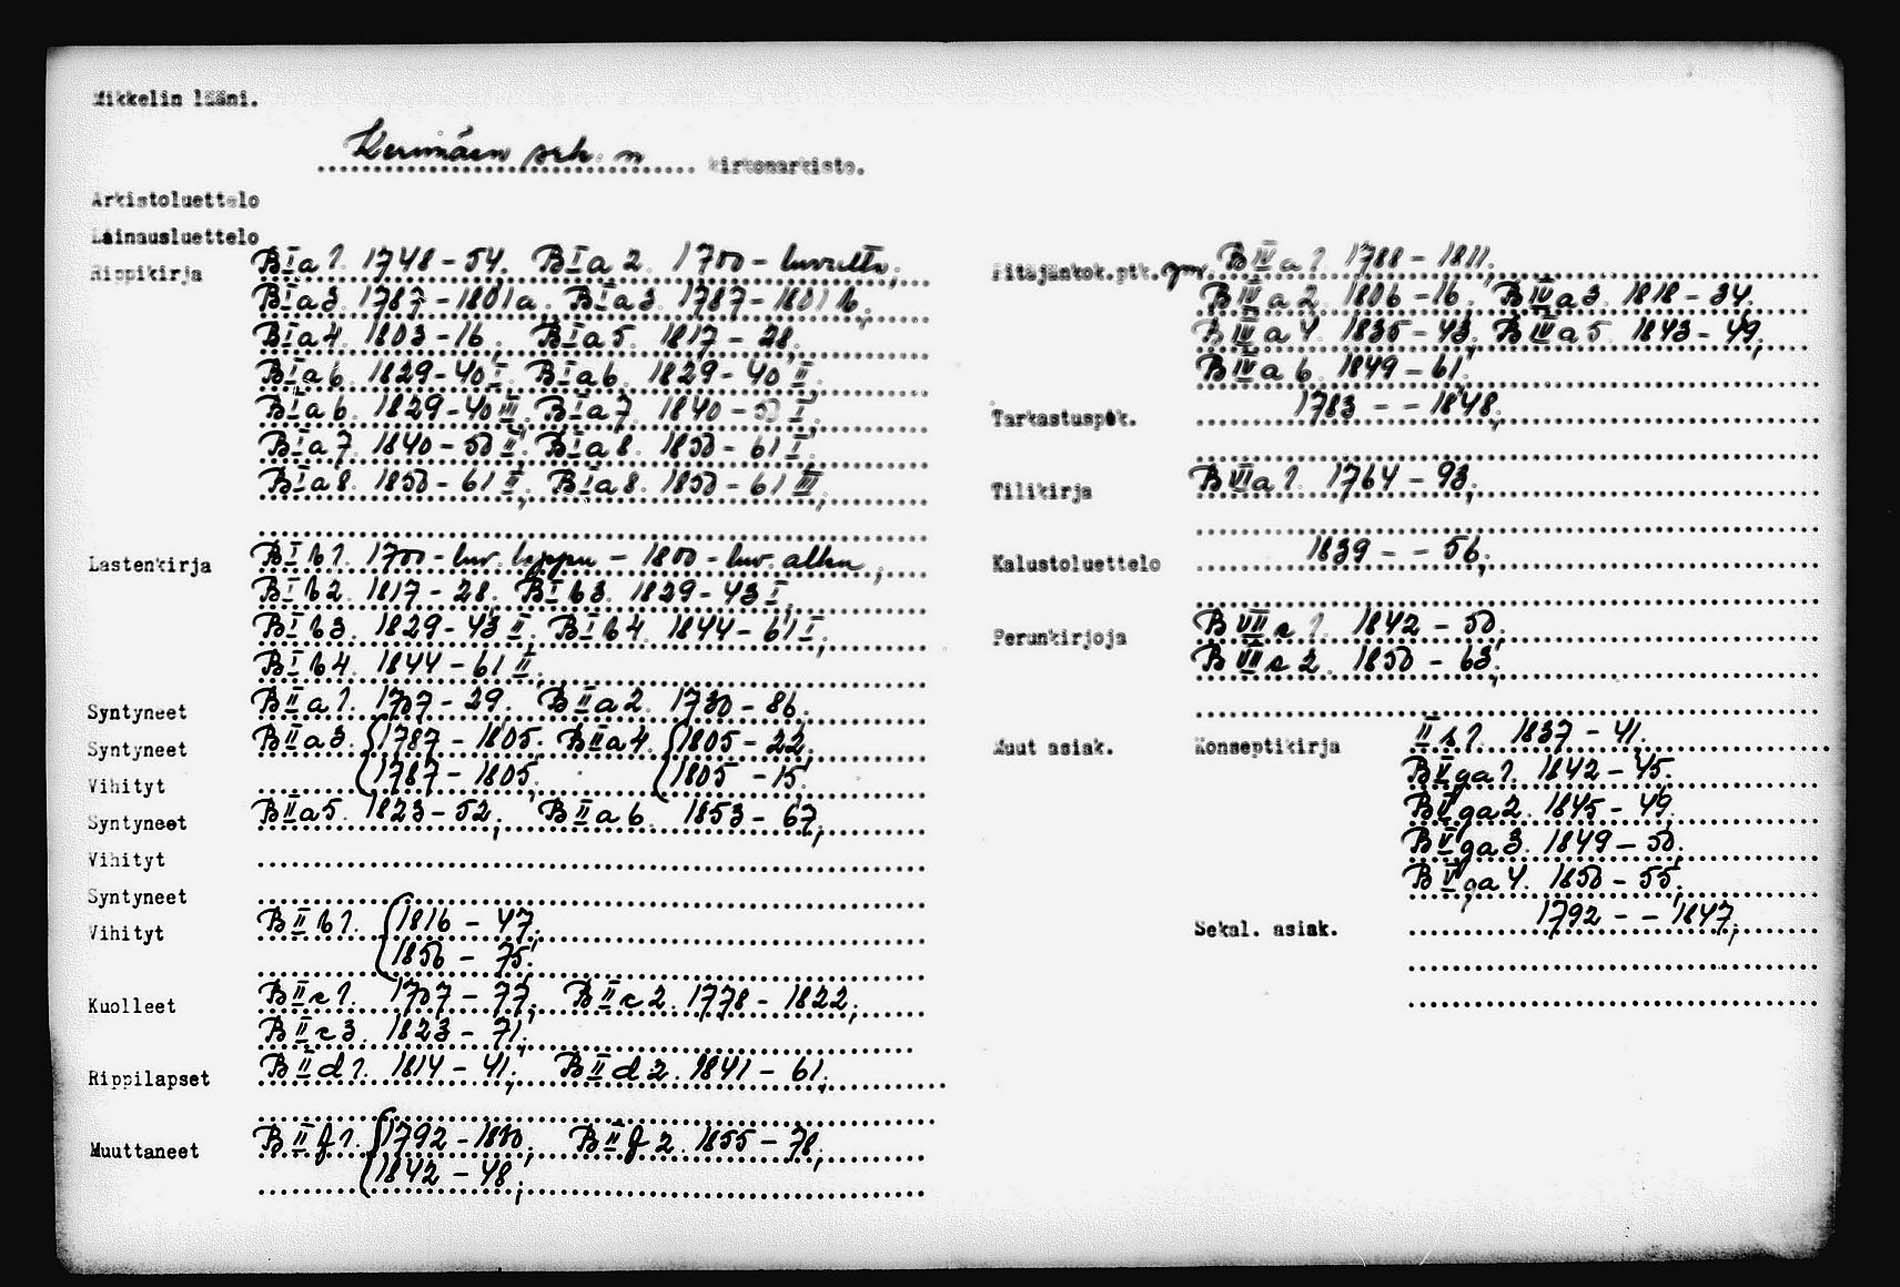 Mikkelin lääni.
Kerimäen srk:n kirkonarkisto.
Arkistoluettelo
Lainausluettelo
Rippikirja BIa1. 1748-54. BIa2. 1700-luvulta;
BIa3. 1787-1801a. BIa3. 1787-1801b;
BIa4. 1803-16; BIa5. 1817-28;
BIa6. 1829-40 I; BIa6. 1829-40 II;
BIa6. 1829-40 III; BIa7. 1840-50 I;
BIa7. 1840-50 II; BIa8. 1850-61 I;
BIa8. 1850-61 II; BIa8. 1850-61 III;
Lastenkirja BIb1. 1700-luv. loppu - 1800-luv. alku;
BIb2. 1817-28. BIb3. 1829-43 I;
BIb3. 1829-43 II; BIb4. 1844-61 I;
BIb4. 1844-61 II;
Syntyneet BIIa1. 1707-29. BIIa2. 1730-86.
Syntyneet BIIa3. {1787-1805; BIIa4. {1805-22;
Vihityt {1787-1805; {1805-15;
Syntyneet BIIa5. 1823-52; BIIa6. 1853-67;
Vihityt
Syntyneet
Vihityt BIIb1. {1816-47;
{1850-75;
Kuolleet BIIc1. 1707-77; BIIc2. 1778-1822;
BIIc3. 1823-71;
Rippilapset BIId1. 1814-41; BIId2. 1841-61;
Muuttaneet BIIf1. {1792-1830; BIIf2. 1855-78;
{1842-48;
Pitäjänkok.ptk. BIVa1. 1788-1811;
BIVa2. 1806-16; BIVa3. 1818-34.
BIVa4. 1835-43; BIVa5. 1843-49;
BIVa6. 1849-61;
Tarkastuspök. 1783 - - 1848;
Tilikirja BVIa1. 1764-93;
Kalustoluettelo 1839 - - 56;
Perunkirjoja BVIIc1. 1842-50;
BVIIc2. 1850-63;
Muut asiak. Konseptikirja 1837-41.
BVga1. 1842-45.
BVga2. 1845-49.
BVga3. 1849-50;
BVga4. 1850-55;
Sekal. asiak. 1792 - - 1847;